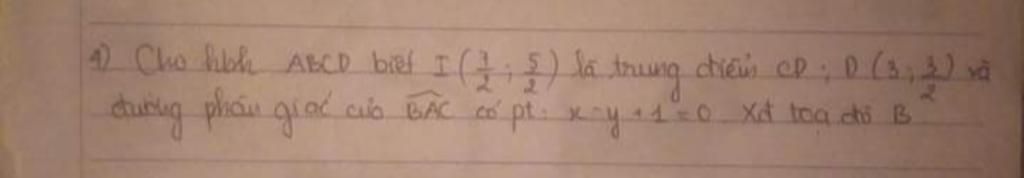 4) Cho hbh ABCD biết I (7/2 ; 5/2) là trung điểm CD ; D (3 ; 3/2) và
đường phân giác của BAC có pt: x - y + 1 = 0 Xđ toạ độ B